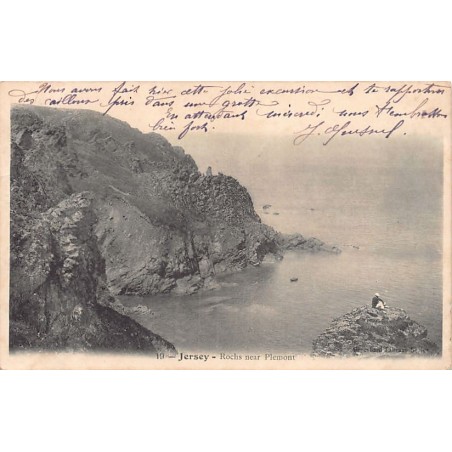 Nous avons fait hier cette jolie excursion et te rapportons
des cailloux pris dans une grotte
en attendant mercredi nous t'embrassons
bien fort.
19 - Jersey - Rochs near Plemont